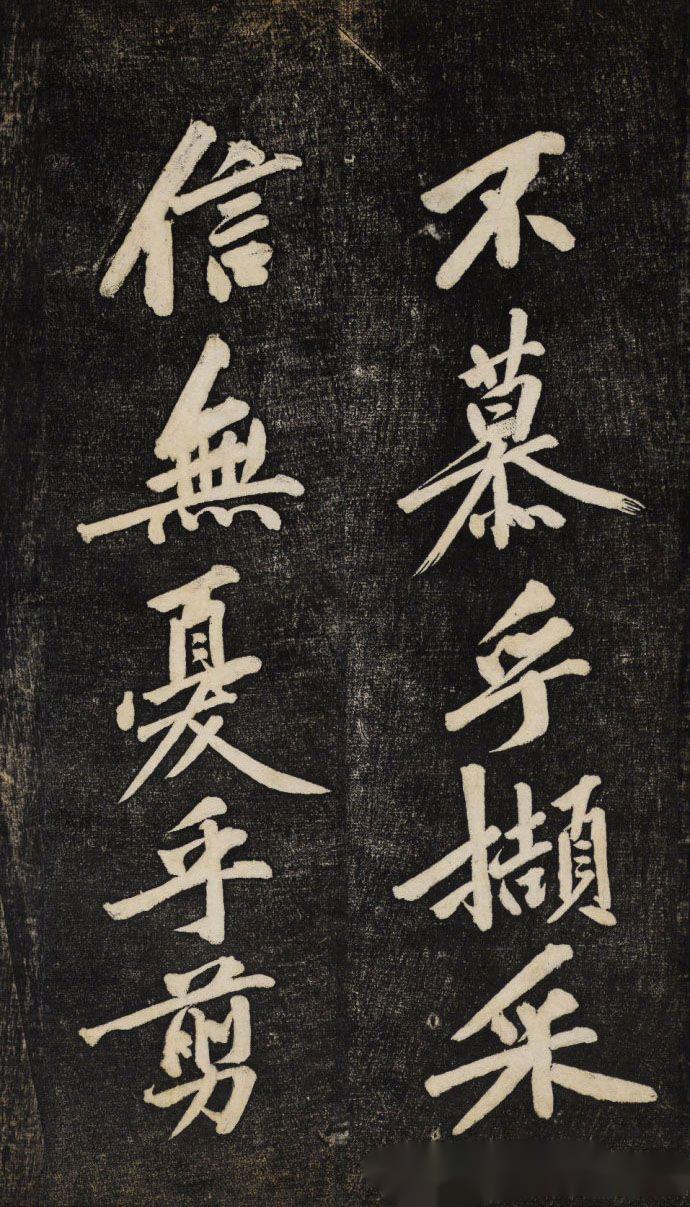 不慕乎擷采
信無憂乎剪